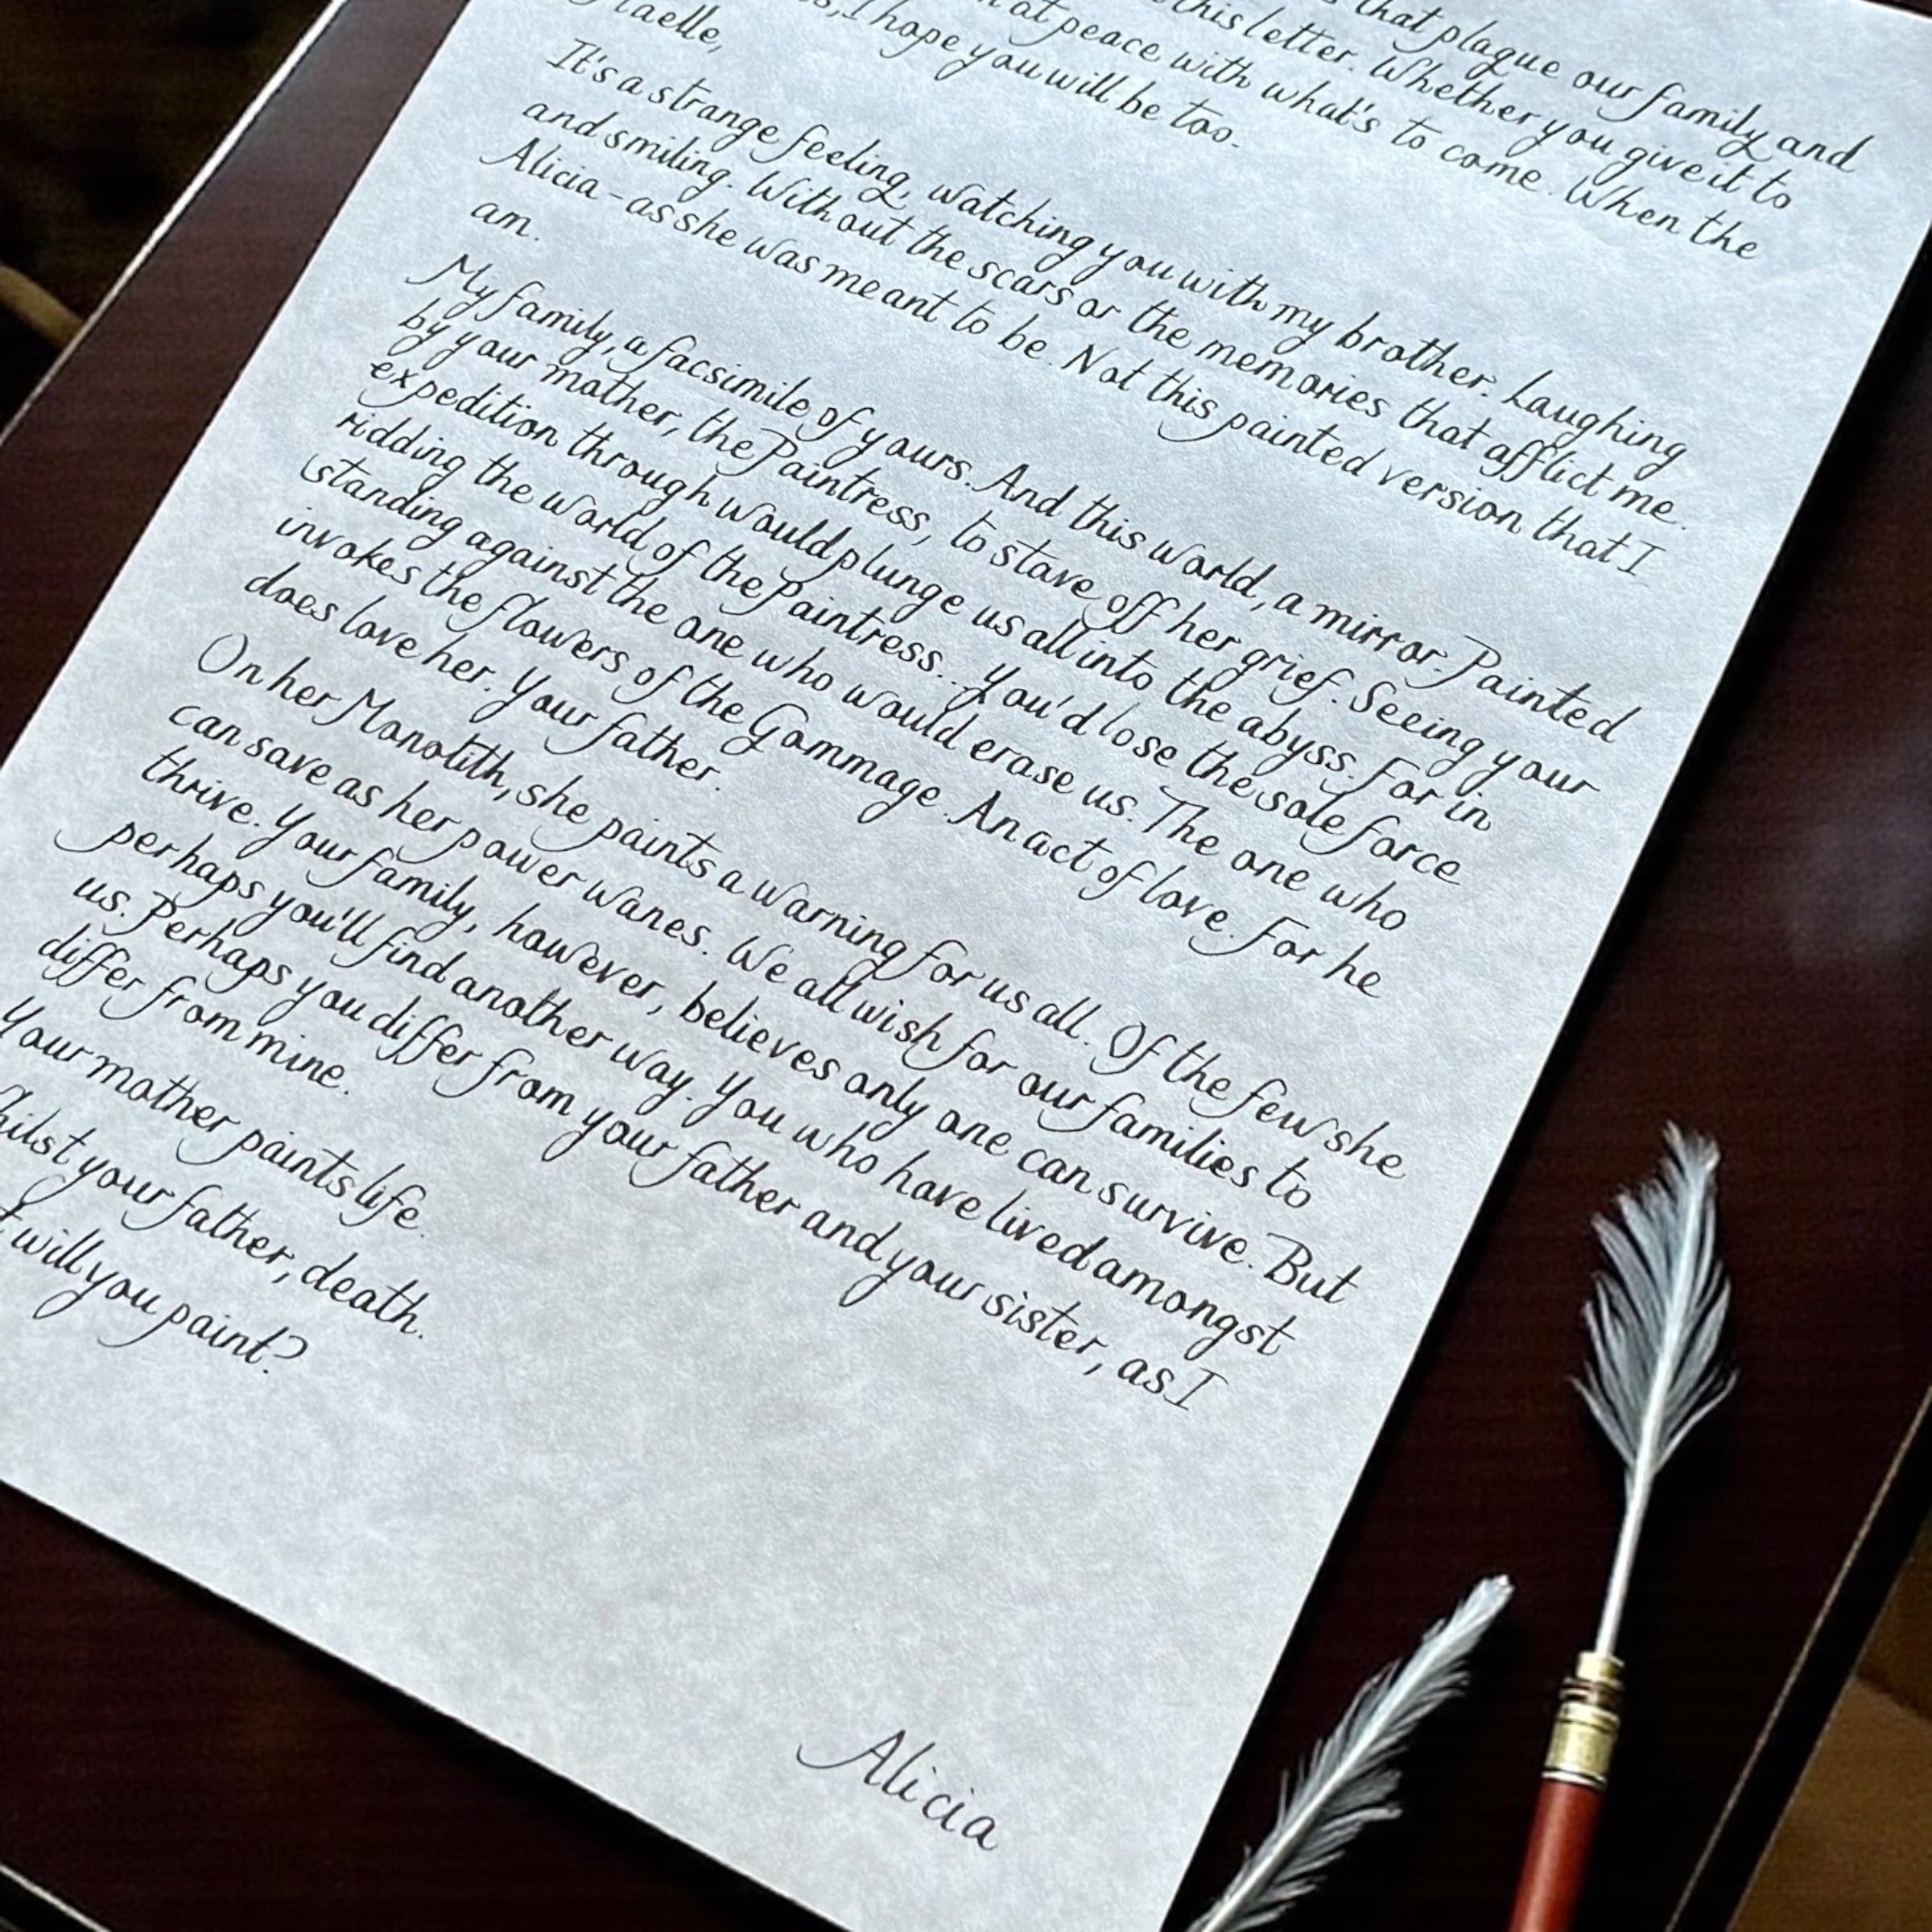 that plague our family and
this letter. Whether you give it to
at peace with what's to come. When the
I hope you will be too.
Maelle,
It's a strange feeling, watching you with my brother. Laughing
and smiling. Without the scars or the memories that afflict me.
Alicia – as she was meant to be. Not this painted version that I
am.
My family, a facsimile of yours. And this world, a mirror. Painted
by your mother, the Paintress, to stave off her grief. Seeing your
expedition through would plunge us all into the abyss. For in
ridding the world of the Paintress... you'd lose the sole force
standing against the one who would erase us. The one who
invokes the flowers of the Gommage. An act of love. For he
does love her. Your father.
On her Monolith, she paints a warning for us all. Of the few she
can save as her power wanes. We all wish for our families to
thrive. Your family, however, believes only one can survive. But
perhaps you'll find another way. You who have lived amongst
us. Perhaps you differ from your father and your sister, as I
differ from mine.
Your mother paints life.
hilst your father, death.
will you paint?
Alicia